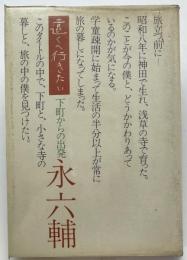 旅立つ前に―
昭和八年に神田で生れ、浅草の寺で育った。
このことが今の僕と、どうかかわりあって
いるのかが気になる。
学童疎開に始まって生活の半分以上が常に
旅の暮しになってしまった。
遠くへ行きたい
下町からの出発
永六輔
このタイトルの中で、下町と、小さな寺の
暮しと、旅の中の僕を見つけたい。